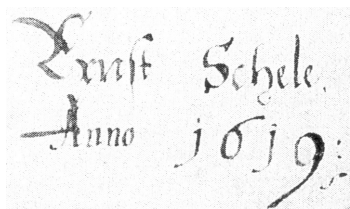 Ernst Schele.
Anno 1619: